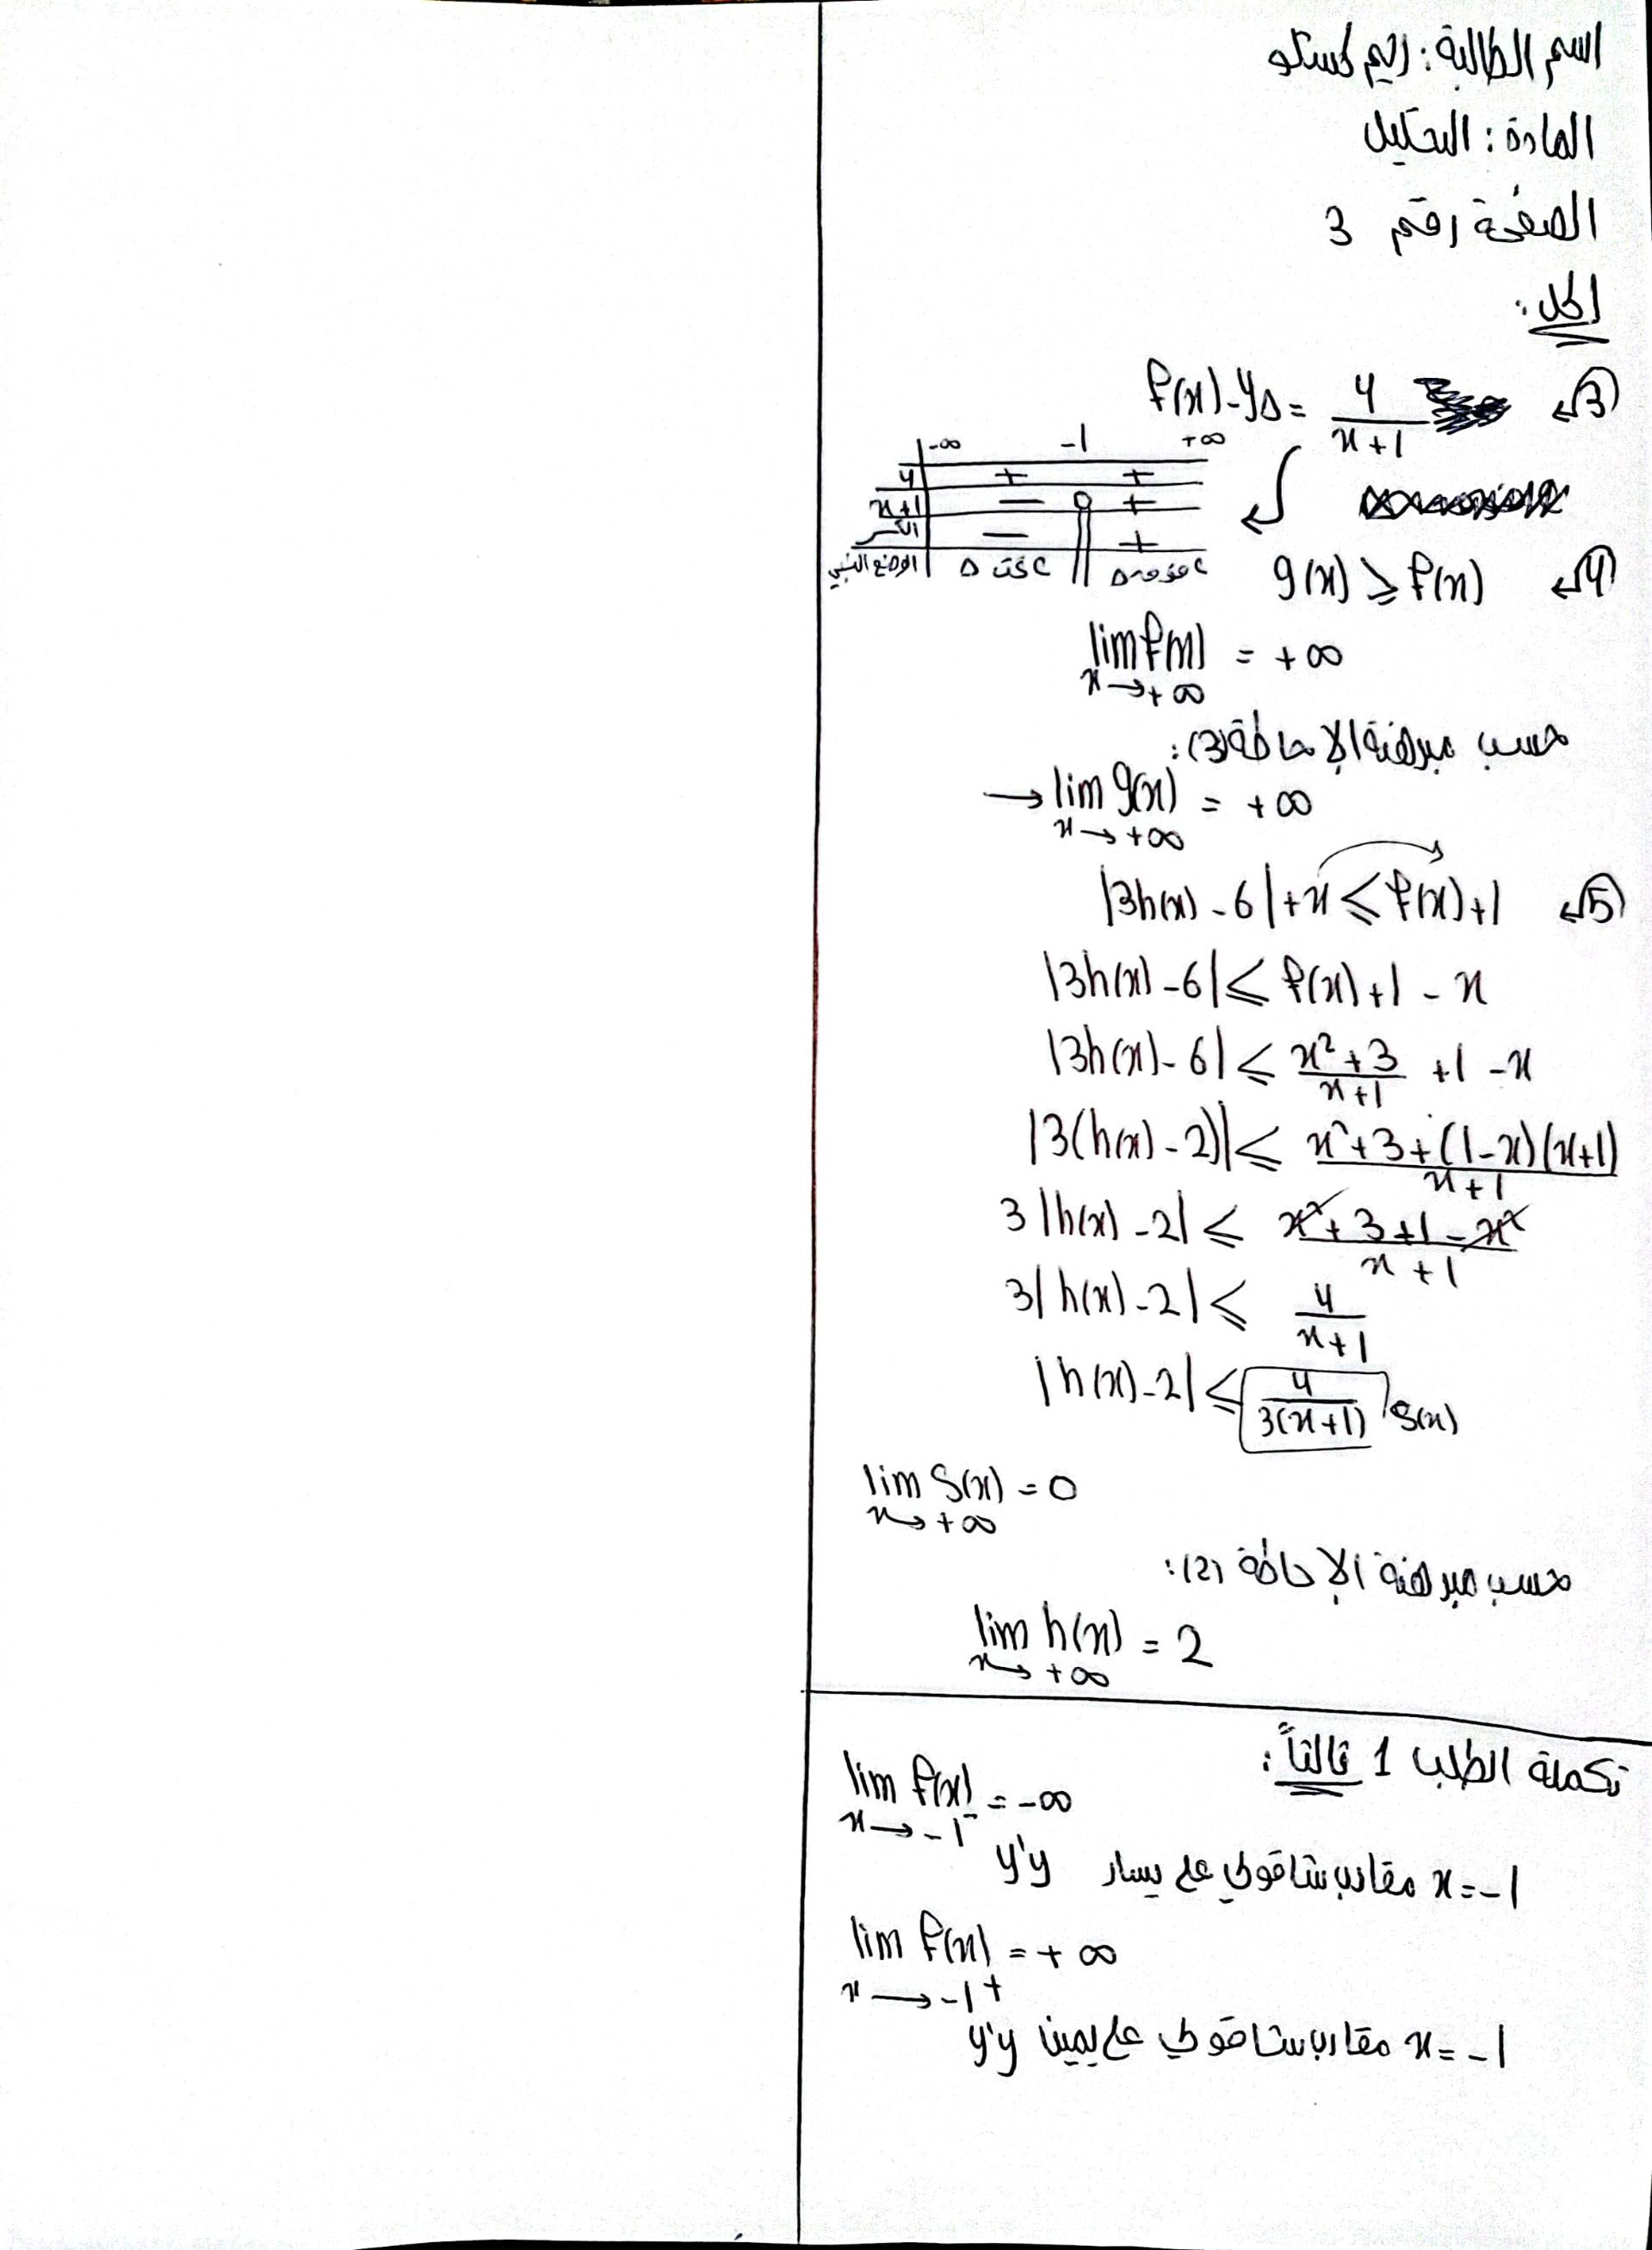 اسم الطالبة: ريم كستكو
المادة: التحليل
الصفحة رقم 3
الحل:
3) f(x) - y_Δ = 4/(x+1)
-∞ -1 +∞
4 + +
x+1 - 0 +
الكسر - || +
الوضع النسبي C تحت Δ || C فوق Δ
4) g(x) ≥ f(x)
lim f(x) = +∞
x → +∞
حسب مبرهنة الإحاطة (3):
→ lim g(x) = +∞
x → +∞
5) |3h(x) - 6| + x ≤ f(x) + 1
|3h(x) - 6| ≤ f(x) + 1 - x
|3h(x) - 6| ≤ (x² + 3)/(x+1) + 1 - x
|3(h(x) - 2)| ≤ (x² + 3 + (1-x)(x+1))/(x+1)
3|h(x) - 2| ≤ (x² + 3 + 1 - x²)/(x+1)
3|h(x) - 2| ≤ 4/(x+1)
|h(x) - 2| ≤ 4/(3(x+1)) S(x)
lim S(x) = 0
x → +∞
حسب مبرهنة الإحاطة (2):
lim h(x) = 2
x → +∞
تكملة الطلب 1 ثالثاً:
lim f(x) = -∞
x → -1⁻
x = -1 مقارب شاقولي على يسار y'y
lim f(x) = +∞
x → -1⁺
x = -1 مقارب شاقولي على يمين y'y